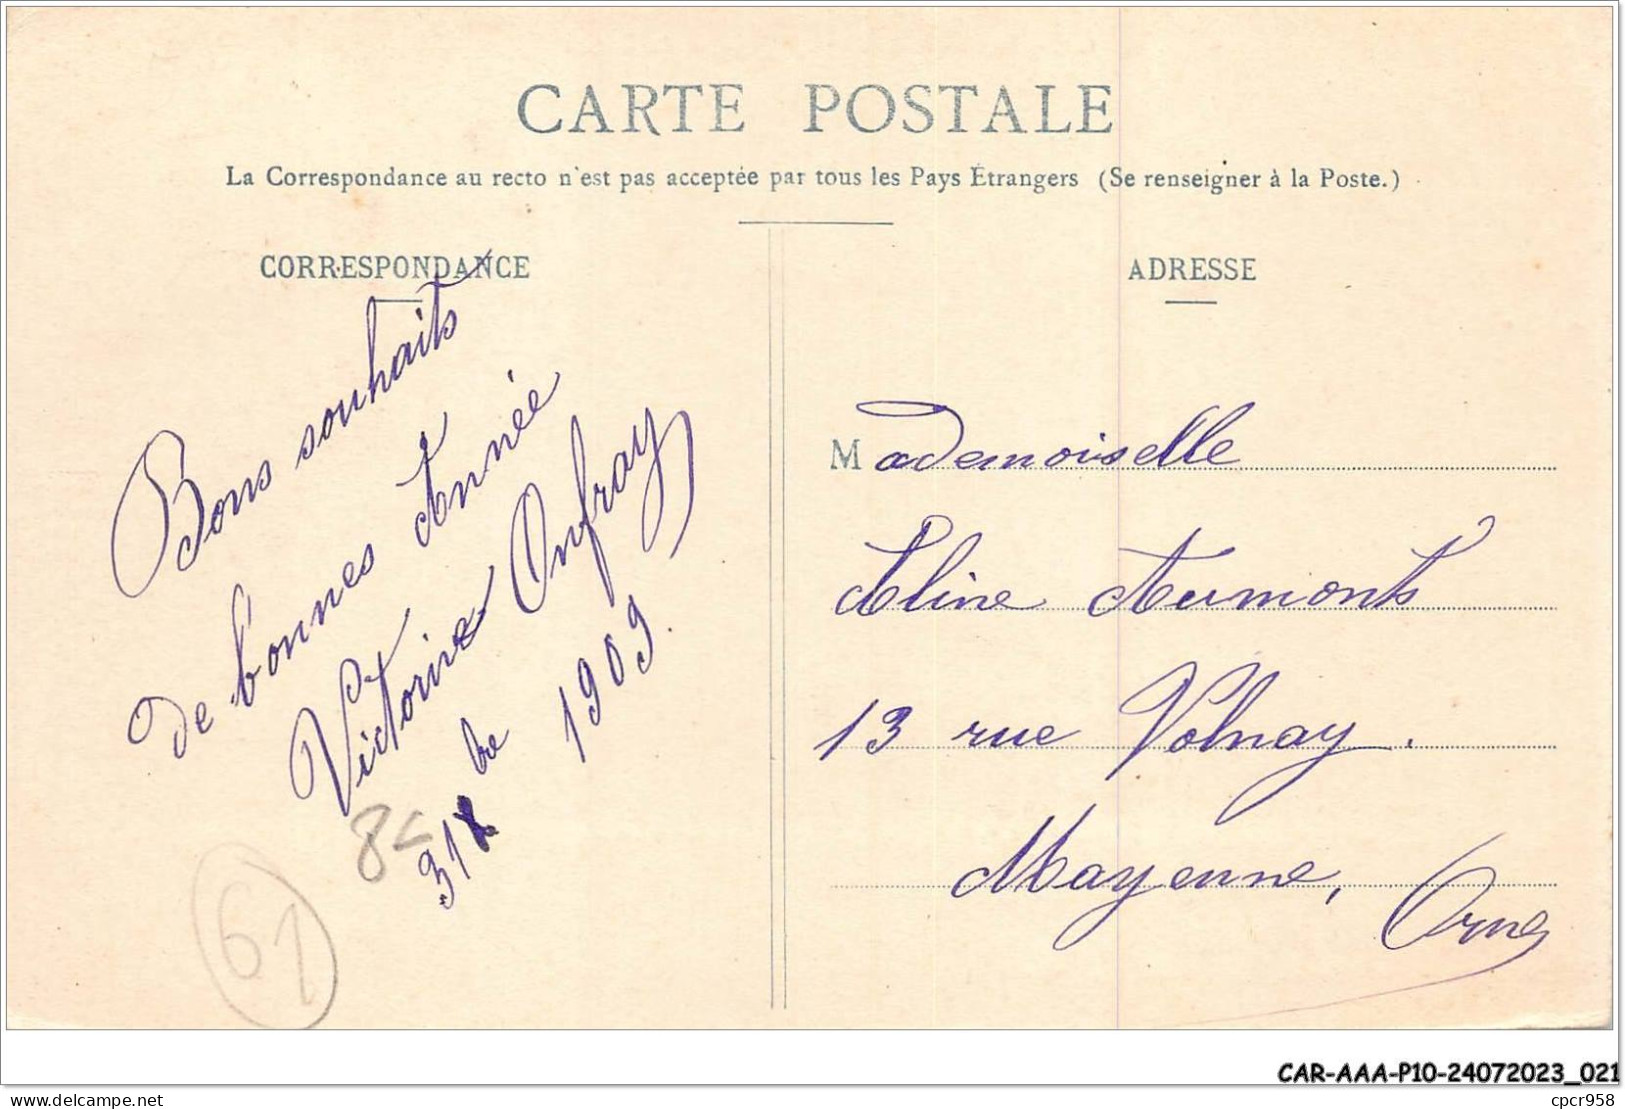 CARTE POSTALE
La Correspondance au recto n'est pas acceptée par tous les Pays Étrangers (Se renseigner à la Poste.)
CORRESPONDANCE
Bons souhaits
de bonnes Année
Victorine Onfray
31 Xbre 1909.
8
61
ADRESSE
Mademoiselle
Aline Aumont
13 rue Volnay.
Mayenne,
Orne
CAR-AAA-P10-24072023_021
delcampe.net
cpcr958